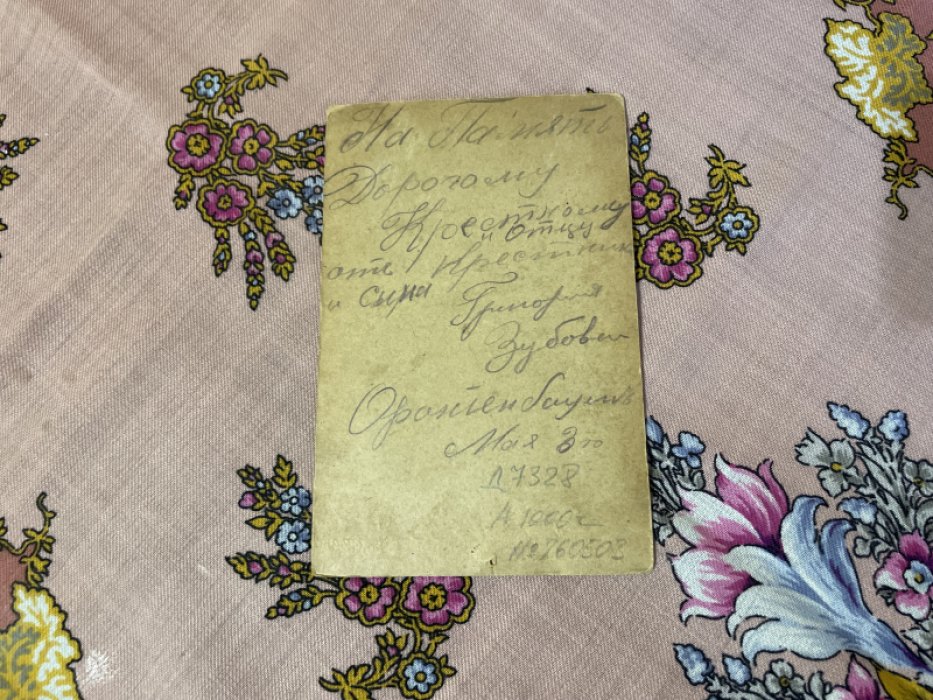 На Память
Дорогому
Крестному
и отцу
отъ Крестника
и сына
Григория
Зубова
Ораніенбаумъ
Мая 3го
Д7328
А 1000
№ 860503